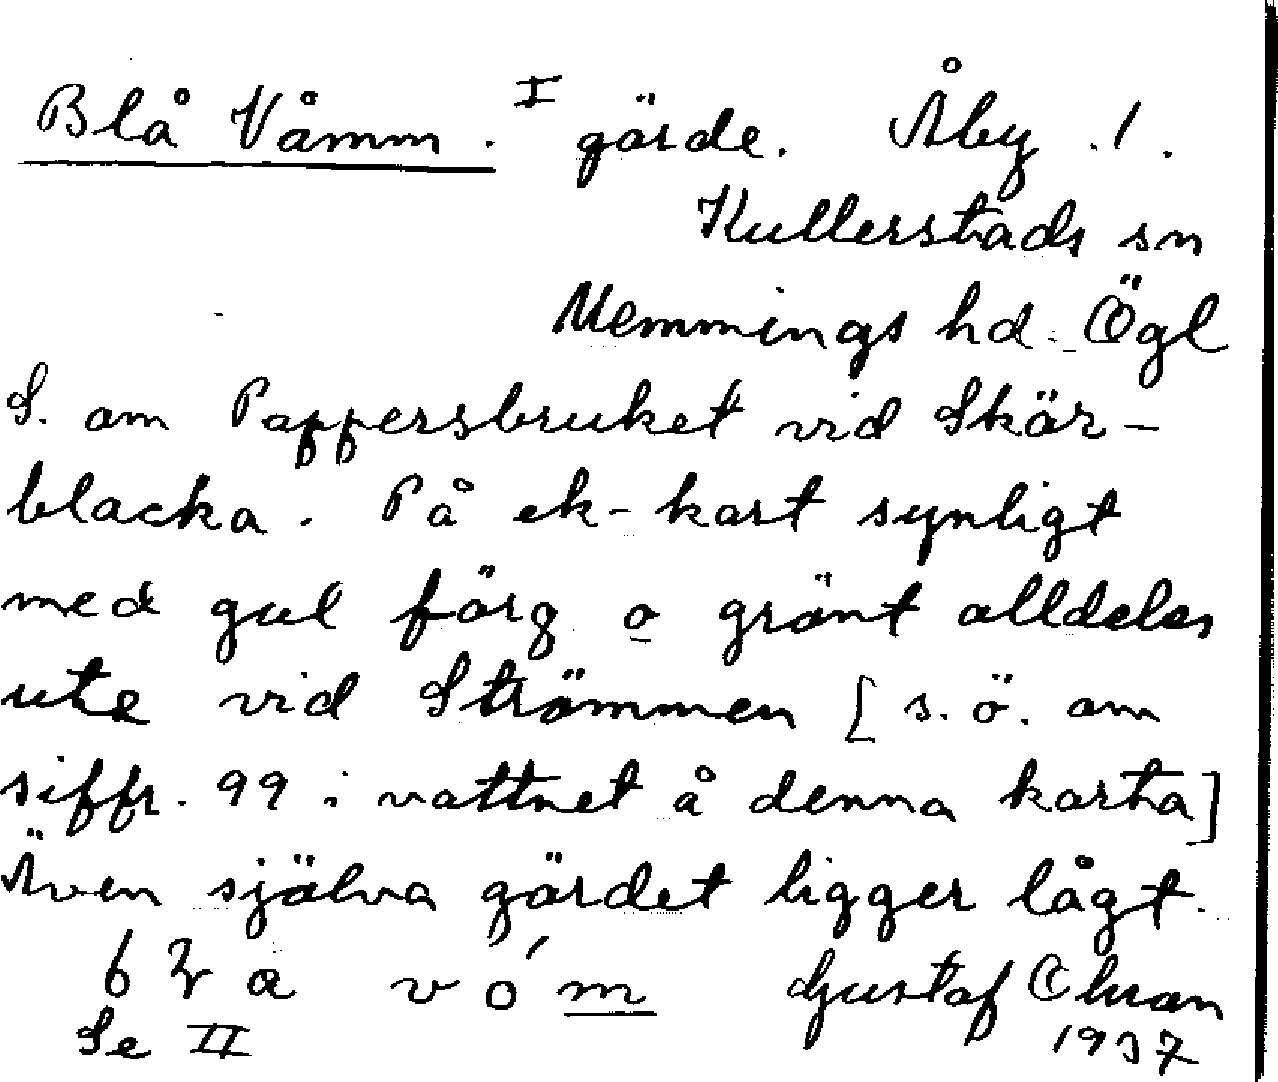 Blå Våmm. I gärde. Åby .1.
Kullerstads sn
Memmings hd. Ögl
S. om Pappersbruket vid Skär-
blacka. På ek-kart synligt
med gul färg o grönt alldeles
ute vid Strömmen [s.ö. om
siffr. 99 i vattnet å denna karta]
Även själva gärdet ligger lågt.
vóm Gustaf
Se II 1937